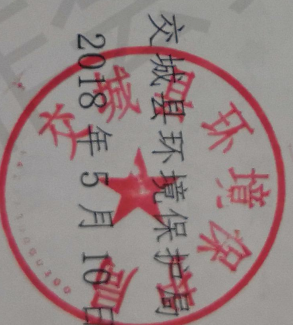 交城县环境保护局
2018年5月10日
交城县环境保护局